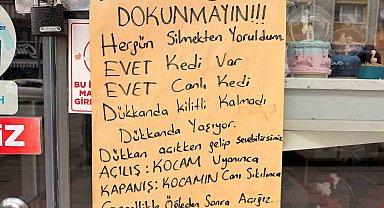 DOKUNMAYIN!!!
Hergün Silmekten Yoruldum
EVET Kedi Var
EVET Canlı Kedi
Dükkanda kilitli Kalmadı
Dükkanda Yaşıyor.
Dükkan açıkken gelip Sevebilirsiniz
AÇILIŞ: KOCAM Uyanınca
KAPANIŞ: KOCAMIN Canı Sıkılınca
Genellikle Öğleden Sonra Açığız.
BU İ
MA
GİRİ
İZ